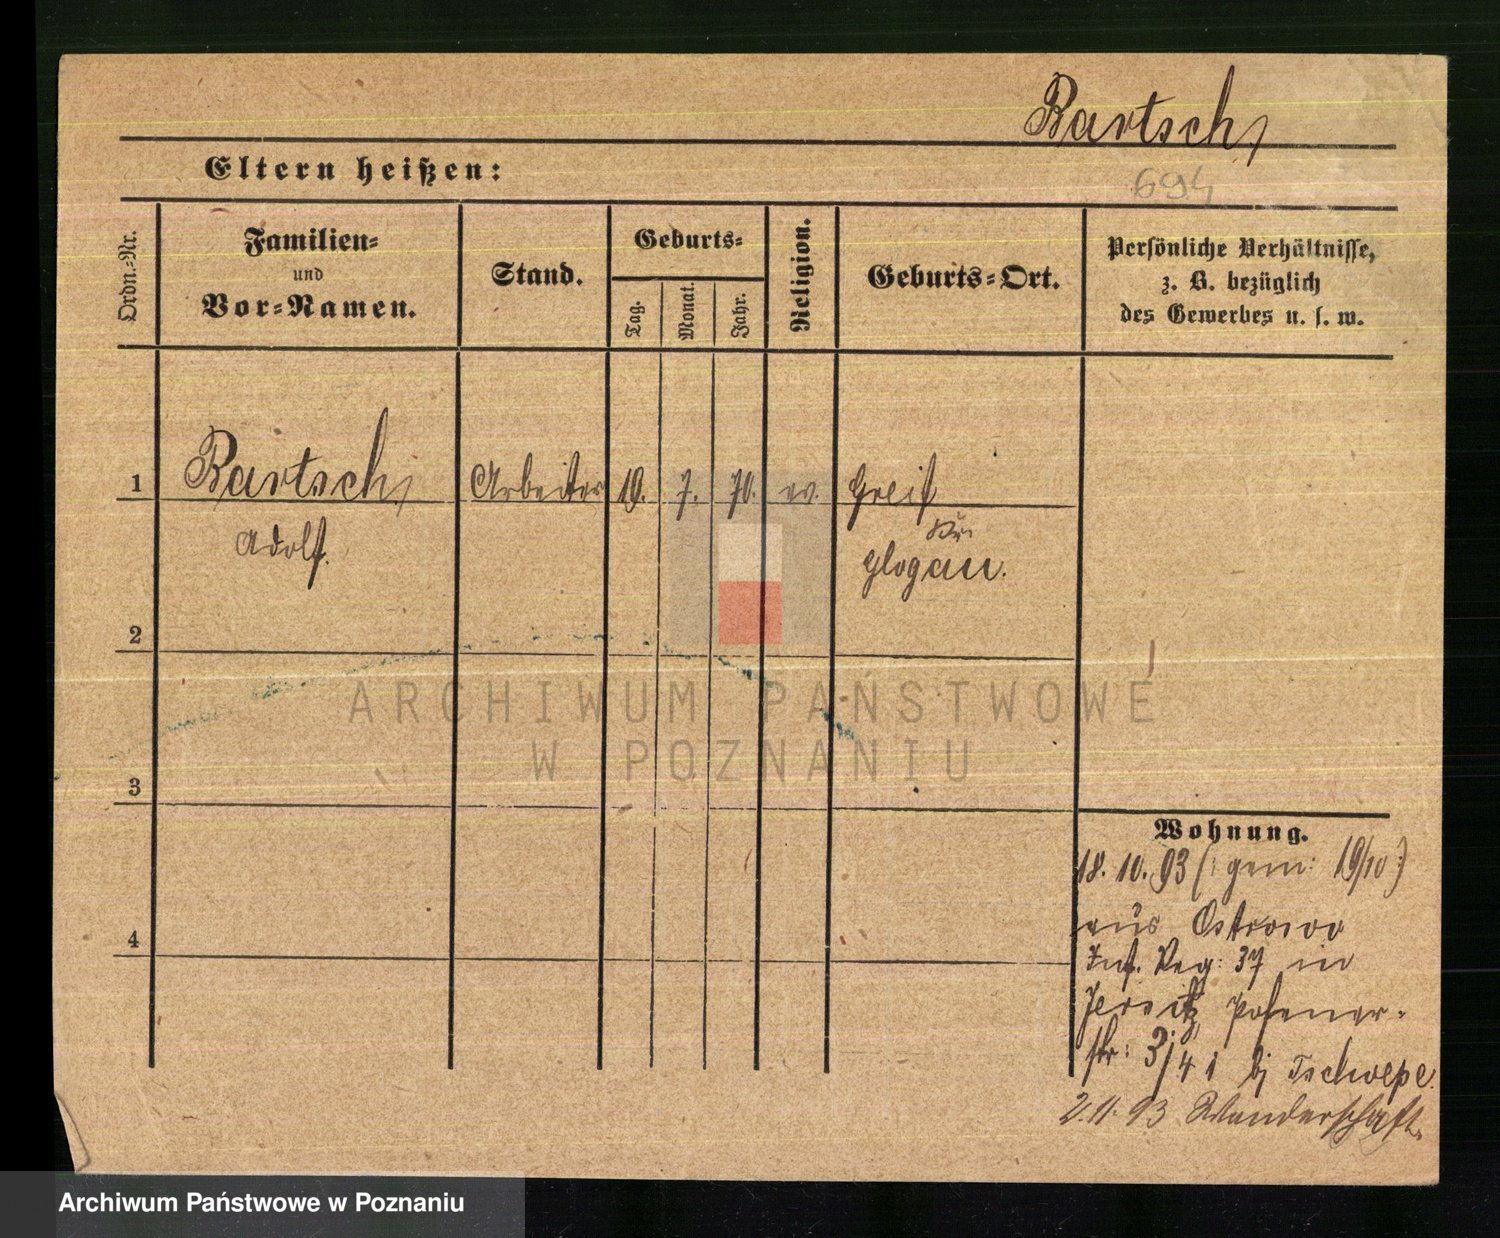 Bartsch
Eltern heißen:
694
Ordn.-Nr.
Familien-
und
Vor-Namen.
Stand.
Geburts-
Tag.
Monat.
Jahr.
Religion.
Geburts-Ort.
Persönliche Verhältnisse,
z. B. bezüglich
des Gewerbes u. s. w.
1 Bartsch Arbeiter 10. 7. 70. ev. Greif
Adolf. Kr.
Glogau.
2
3
4
ARCHIWUM PAŃSTWOWE
W POZNANIU
Wohnung.
18. 10. 93 (: gem: 19/10 :)
aus Ostrowo
Inf. Reg: 37 in
Jersitz Posener-
str: 3/4 I bj Tschoepe.
2. 11. 93 Wanderschaft.
Archiwum Państwowe w Poznaniu